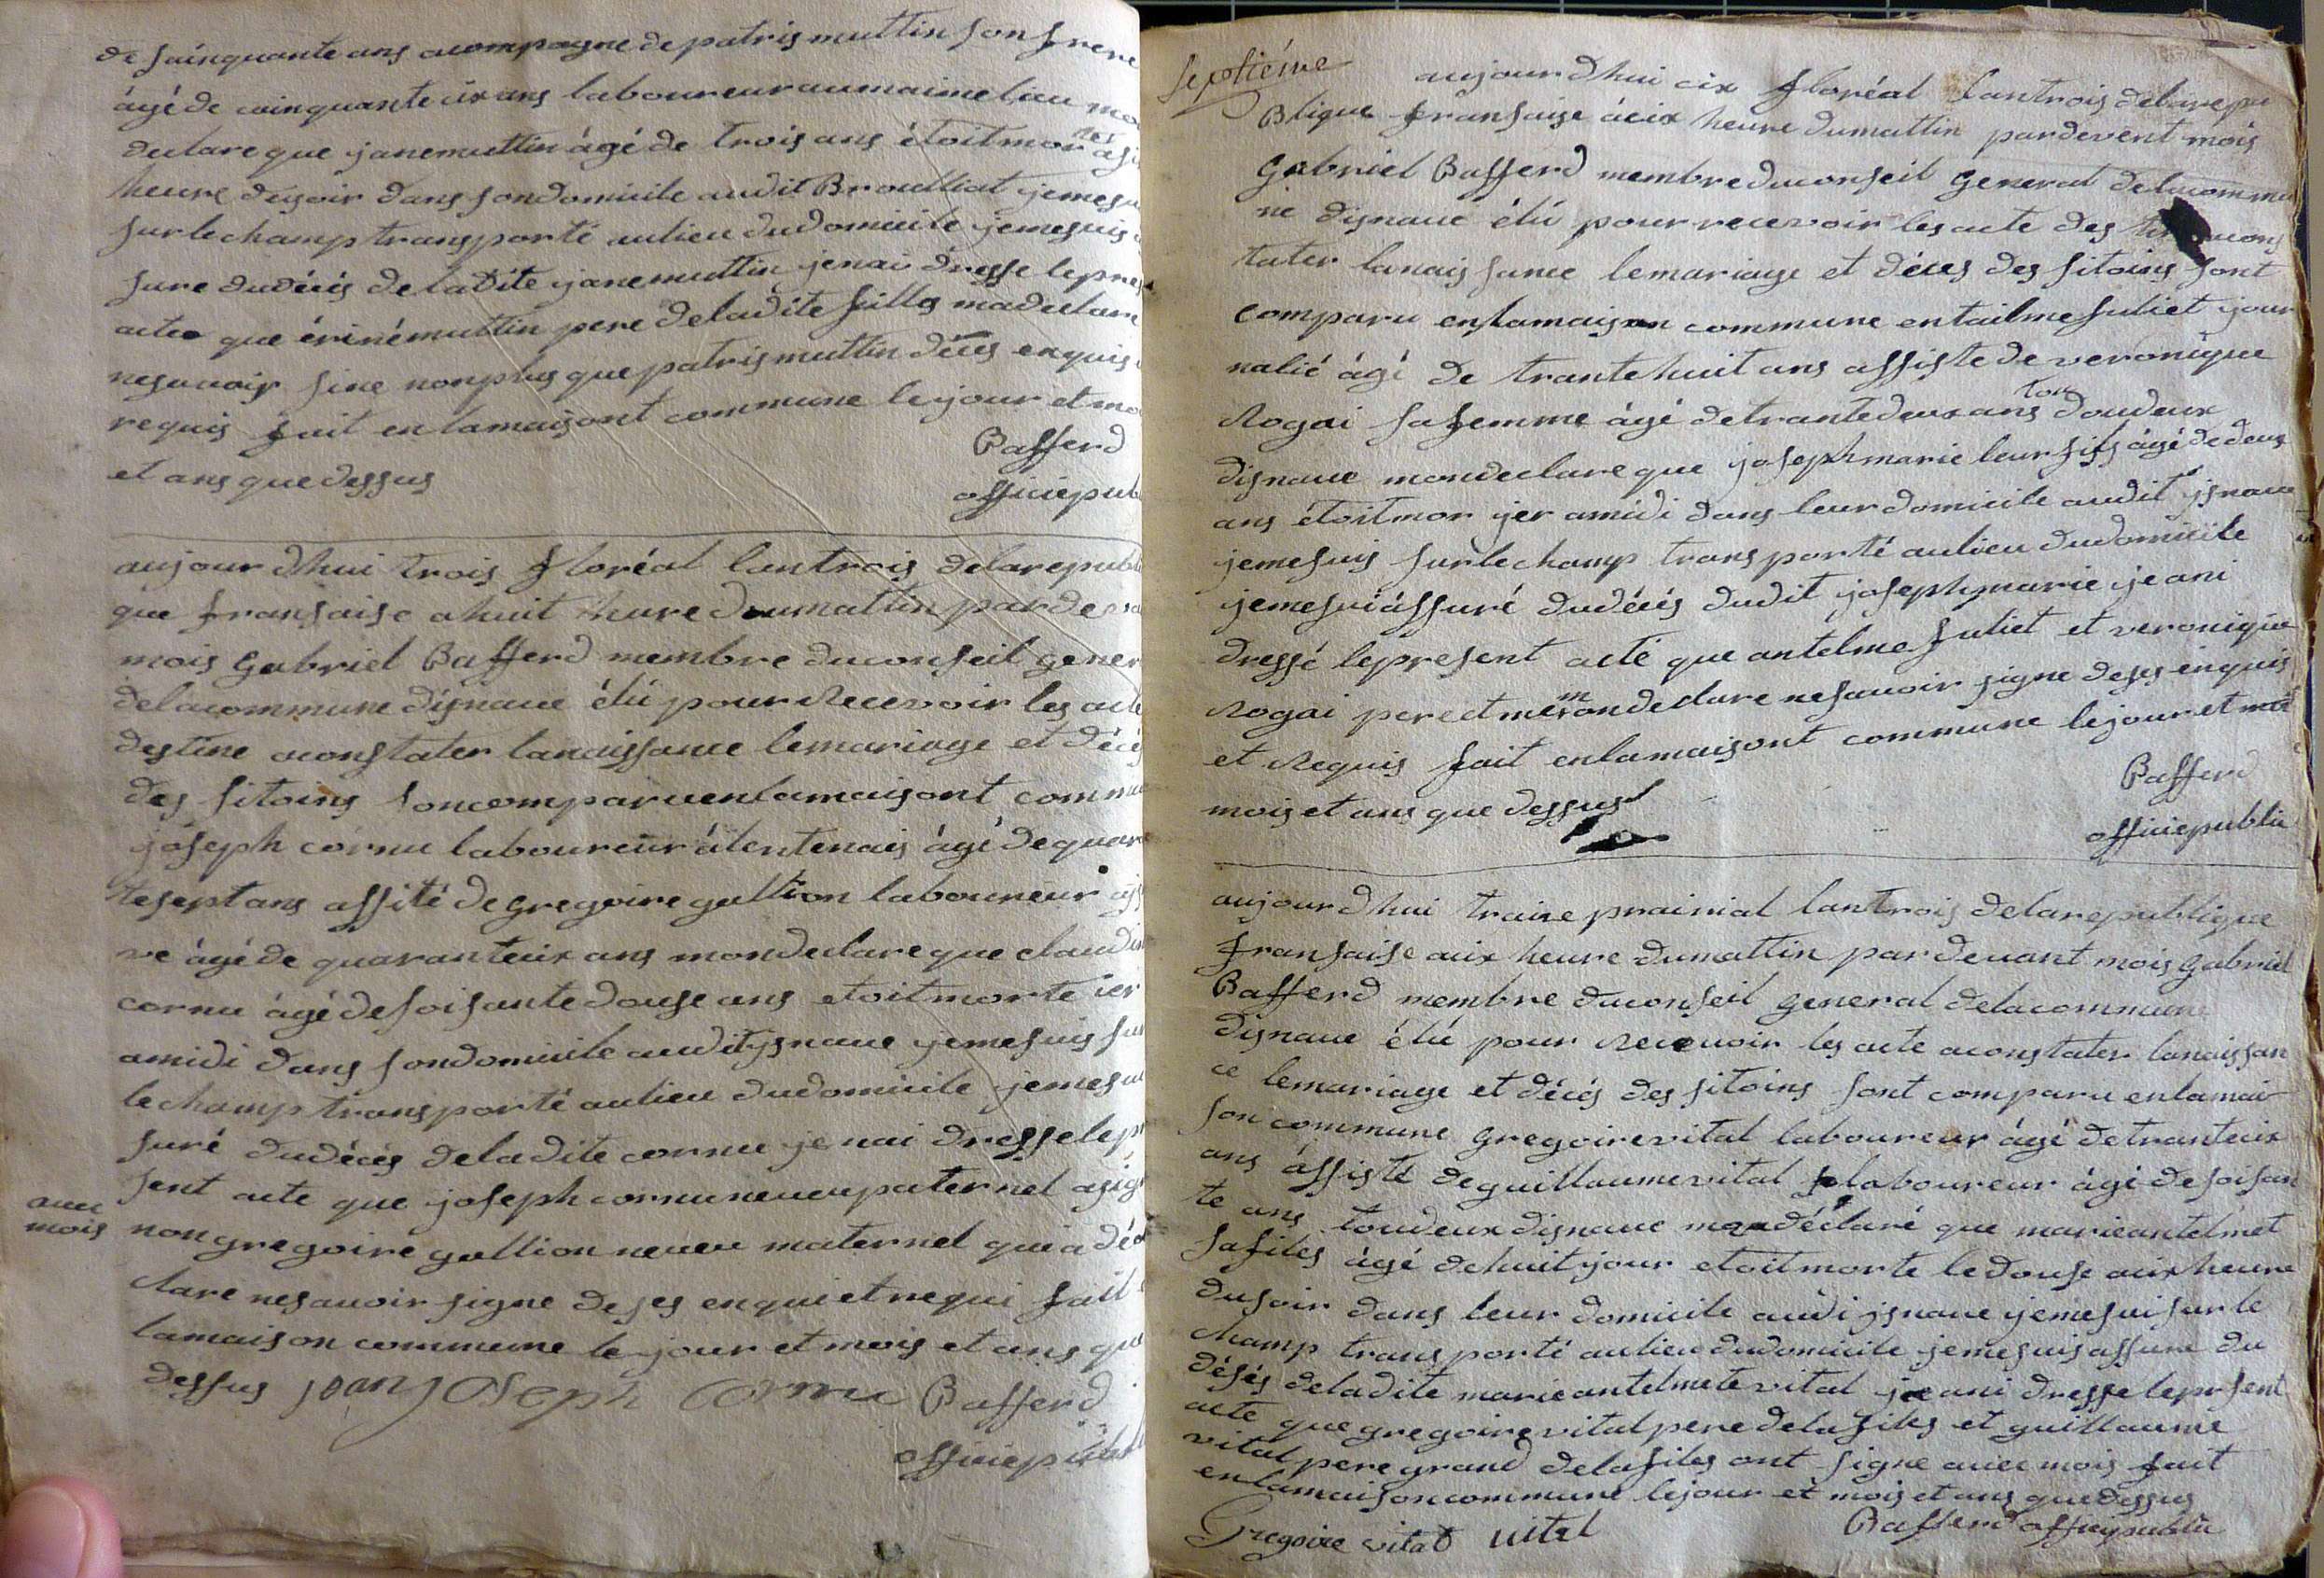 de sainquante ans acompagne de patris muttin son frere
âgé de cinquante cix ans laboureur aumaime lieu
declare que jane muttin âgé de trois ans étoit mor ier
heure dusoir dans son domicile audit Broulliat jeme
sur le champ transporté aulieu dudomicile jemesuis
sure dudécés de ladite jane muttin jenai dresse lepres
acte que ériné muttin pere deladite fille madeclare
nesavoir sine nonplus que patris muttin décés enquis
requis fait en lamaisont commune lejour et mo
et ans que dessus
Bafferd
officiepub
aujourdhui trois floréal lantrois delarepubli
que fransaise a huit hure dumattin pardeva
mois Gabriel Bafferd membre duconseil gener
delacommune disnave élu pour Recevoir les acte
destine aconstater lanaissance lemariage et décés
des sitoins soncomparuenlamaisont commu
joseph cornu laboureur álentenais âgé dequaran
teseptans assité de gregoire gullion laboureur ajs
ve âgé de quaranteix ans mondeclare que claudi
cornu âgé desoisantedouse ans etoit morte ier
amidi dans sondomicile auditysnave jemesuis sur
lechamp transporté aulieu dudomicile jemesui
suré dudécés deladite cornu jenai dresse lepr
sent acte que joseph cornu neveu paternel asig
avec
mois
nongregoire gullion neveu maternel quia dé
clare nesavoir signe deses enquietrequi fait
lamaison commune lejour et mois et ans que
dessus jean joseph Cornu Bafferd
officiepubl
septiéme
aujourdhui cix floréal lantrois delarepu
Blique fransaise ácix heure dumattin pardevent mois
Gabriel Bafferd membre duconseil General delacommu
ne disnave élú pour recevoir les acte des
tater lanaissance lemariage et déces des sitoins sont
comparu enlamaison commune entailme Juliet jour
nalié âgé de trantehuit ans assiste de veronique
Rogai safemme âgé detrantedeux ans tou doudeux
disnave mondeclare que joseph marie leur fils âgé dedeux
ans étoit mor yer amidi dans leur domicile audit jsnave
jemesuis surlechamp transporté aulieu dudomicile
jemesuiássuré dudécés dudit joseph marie jeani
dressé lepresent acté que antelme Juliet et veronique
Rogai pere et mere m ondeclare nesavoir signe deses enquis
et Requis fait enlamaisont commune lejour et
mois et ans que dessus
Bafferd
officiepublic
aujourdhui traixe prainial lantrois delarepublique
fransaise aix heure dumattin pardevant mois Gabriel
Bafferd membre duconseil General delacommune
disnave élú pour Recevoir les acte aconstater lanaissan
ce lemariage et décés des sitoins sont comparu enlamai
son commune gregoire vital laboureur âgé detranteix
ans ássisté deguillaume vital laboureur âgé desoisan
te ans toudeux disnave mondéclaré que marieantelmet
safiles âgé dehuit jour etoit morte ledouse aix heure
dusoir dans leur domicile audi jsnave jemesuisurle
champ transporté aulieu dudomicile jemesuisassure du
désés deladite marieantelmete vital jeani dresse leprsent
acte que gregoire vital pere delafiles et guillaume
vital pere grand delafiles ont signe avec mois fait
enlamaison commune lejour et mois et ans quedessus
Gregoire vital vital Bafferd officiepublic